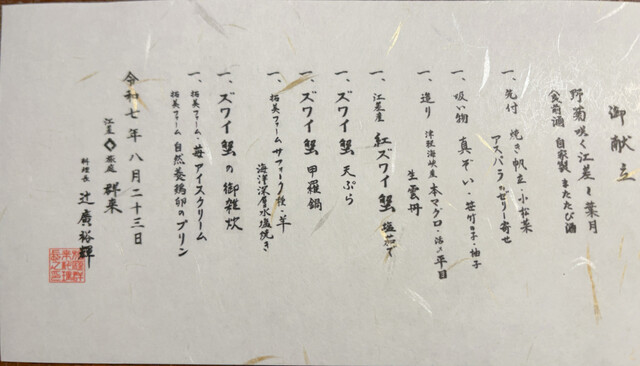 御献立
野菊咲く江差を葉月
食前酒 自家製 またたび酒
一、先付 焼き帆立・小松菜
アスパラのゼリー寄せ
一、吸い物 真ぞい・笹竹の子・柚子
一、造り 津軽海峡産 本マグロ・活〆平目
生雲丹
一、江差産 紅ズワイ蟹 塩茹で
一、ズワイ蟹 天ぷら
一、ズワイ蟹 甲羅鍋
一、拓美ファーム サフォーク種・羊
海洋深層水塩焼き
一、ズワイ蟹の御雑炊
一、拓美ファーム・苺アイスクリーム
拓美ファーム 自然養鶏卵のプリン
令和七年八月二十三日
江差 旅庭 群来
料理長 辻廣裕輝